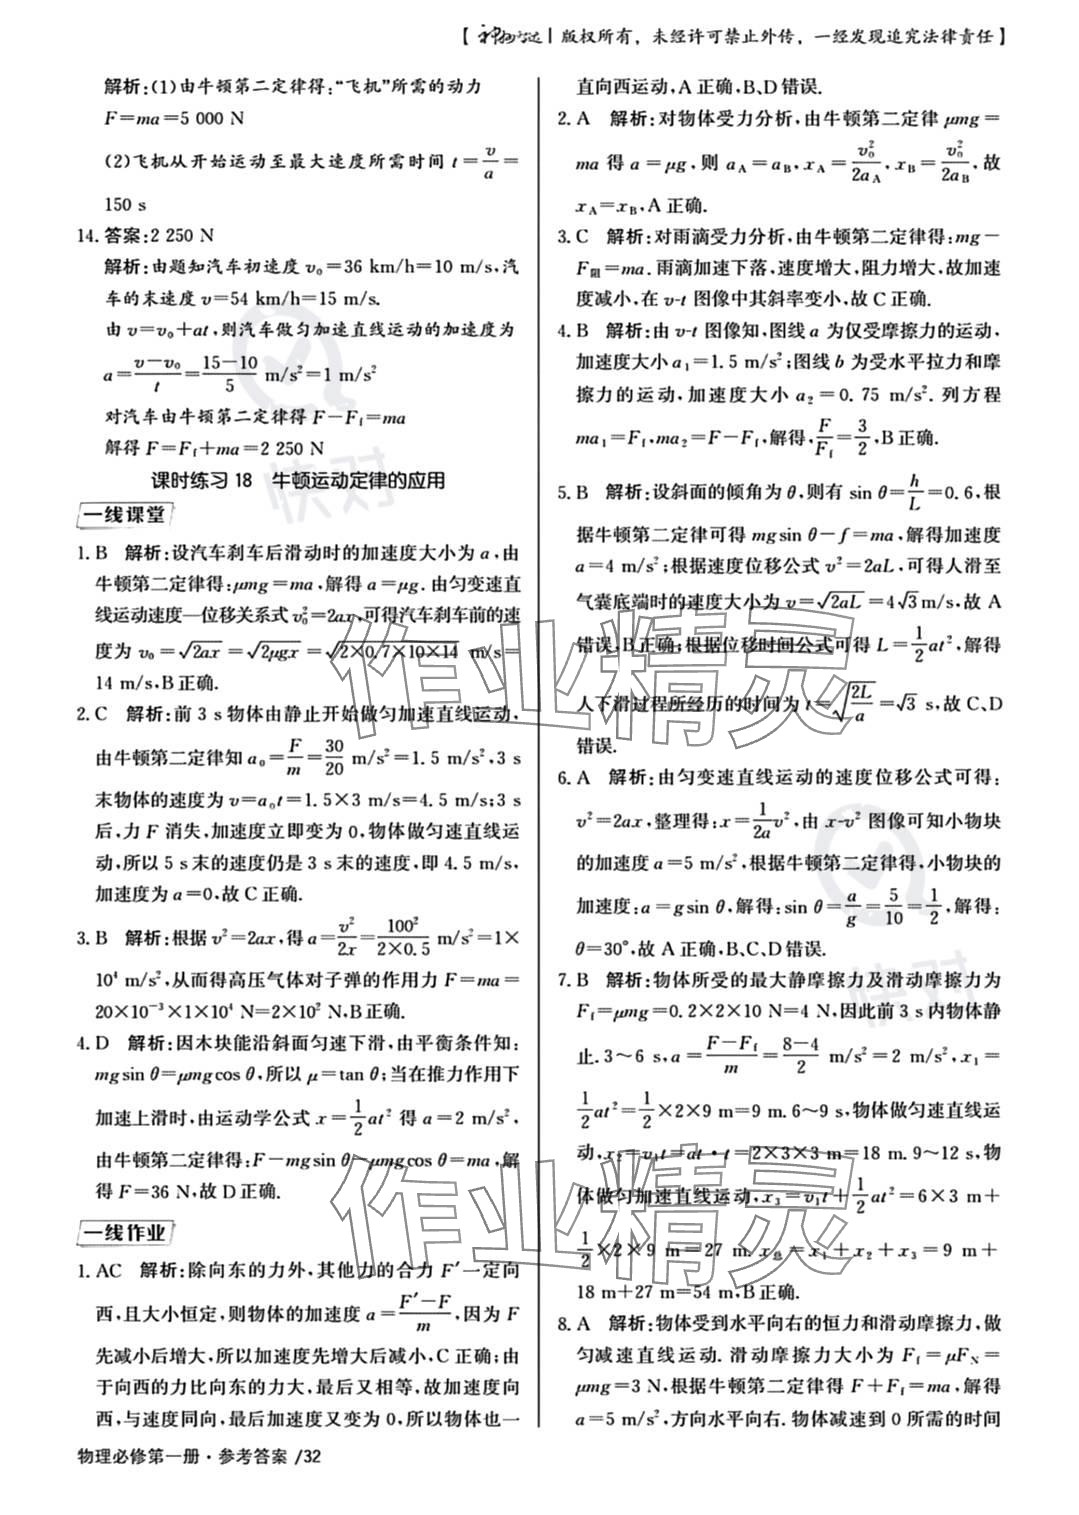 【神州六达 | 版权所有，未经许可禁止外传，一经发现追究法律责任】
解析:(1)由牛顿第二定律得:“飞机”所需的动力
F=ma=5 000 N
(2)飞机从开始运动至最大速度所需时间 t=v/a=
150 s
14. 答案:2 250 N
解析:由题知汽车初速度 v₀=36 km/h=10 m/s,汽
车的末速度 v=54 km/h=15 m/s.
由 v=v₀+at,则汽车做匀加速直线运动的加速度为
a=(v-v₀)/t=(15-10)/5 m/s²=1 m/s²
对汽车由牛顿第二定律得 F-Ff=ma
解得 F=Ff+ma=2 250 N
课时练习 18　牛顿运动定律的应用
一线课堂
1. B　解析:设汽车刹车后滑动时的加速度大小为 a,由
牛顿第二定律得:μmg=ma,解得 a=μg. 由匀变速直
线运动速度—位移关系式 v₀²=2ax,可得汽车刹车前的速
度为 v₀=√(2ax)=√(2μgx)=√(2×0.7×10×14) m/s=
14 m/s,B 正确.
2. C　解析:前 3 s 物体由静止开始做匀加速直线运动,
由牛顿第二定律知 a₀=F/m=30/20 m/s²=1.5 m/s²,3 s
末物体的速度为 v=a₀t=1.5×3 m/s=4.5 m/s;3 s
后,力 F 消失,加速度立即变为 0,物体做匀速直线运
动,所以 5 s 末的速度仍是 3 s 末的速度,即 4.5 m/s,
加速度为 a=0,故 C 正确.
3. B　解析:根据 v²=2ax,得 a=v²/2x=100²/(2×0.5) m/s²=1×
10⁴ m/s²,从而得高压气体对子弹的作用力 F=ma=
20×10⁻³×1×10⁴ N=2×10² N,B 正确.
4. D　解析:因木块能沿斜面匀速下滑,由平衡条件知:
mgsin θ=μmgcos θ,所以 μ=tan θ;当在推力作用下
加速上滑时,由运动学公式 x=1/2at² 得 a=2 m/s²,
由牛顿第二定律得:F-mgsin θ-μmgcos θ=ma,解
得 F=36 N,故 D 正确.
一线作业
1. AC　解析:除向东的力外,其他力的合力 F′一定向
西,且大小恒定,则物体的加速度 a=(F′-F)/m,因为 F
先减小后增大,所以加速度先增大后减小,C 正确;由
于向西的力比向东的力大,最后又相等,故加速度向
西,与速度同向,最后加速度又变为 0,所以物体也一
物理必修第一册·参考答案 /32
直向西运动,A 正确,B、D 错误.
2. A　解析:对物体受力分析,由牛顿第二定律 μmg=
ma 得 a=μg,则 aA=aB,xA=v₀²/2aA,xB=v₀²/2aB,故
xA=xB,A 正确.
3. C　解析:对雨滴受力分析,由牛顿第二定律得:mg-
F阻=ma. 雨滴加速下落,速度增大,阻力增大,故加速
度减小,在 v-t 图像中其斜率变小,故 C 正确.
4. B　解析:由 v-t 图像知,图线 a 为仅受摩擦力的运动,
加速度大小 a₁=1.5 m/s²;图线 b 为受水平拉力和摩
擦力的运动,加速度大小 a₂=0.75 m/s². 列方程
ma₁=Ff,ma₂=F-Ff,解得,F/Ff=3/2,B 正确.
5. B　解析:设斜面的倾角为 θ,则有 sin θ=h/L=0.6,根
据牛顿第二定律可得 mgsin θ-f=ma,解得加速度
a=4 m/s²;根据速度位移公式 v²=2aL,可得人滑至
气囊底端时的速度大小为 v=√(2aL)=4√3 m/s,故 A
错误,B 正确;根据位移时间公式可得 L=1/2at²,解得
人下滑过程所经历的时间为 t=√(2L/a)=√3 s,故 C、D
错误.
6. A　解析:由匀变速直线运动的速度位移公式可得:
v²=2ax,整理得:x=1/2a v²,由 x-v² 图像可知小物块
的加速度 a=5 m/s²,根据牛顿第二定律得,小物块的
加速度:a=gsin θ,解得:sin θ=a/g=5/10=1/2,解得:
θ=30°,故 A 正确,B、C、D 错误.
7. B　解析:物体所受的最大静摩擦力及滑动摩擦力为
Ff=μmg=0.2×2×10 N=4 N,因此前 3 s 内物体静
止. 3~6 s,a=(F-Ff)/m=(8-4)/2 m/s²=2 m/s²,x₁=
1/2at²=1/2×2×9 m=9 m. 6~9 s,物体做匀速直线运
动,x₂=v₁t=at·t=2×3×3 m=18 m. 9~12 s,物
体做匀加速直线运动,x₃=v₁t+1/2at²=6×3 m+
1/2×2×9 m=27 m. x总=x₁+x₂+x₃=9 m+
18 m+27 m=54 m,B 正确.
8. A　解析:物体受到水平向右的恒力和滑动摩擦力,做
匀减速直线运动. 滑动摩擦力大小为 Ff=μFN=
μmg=3 N,根据牛顿第二定律得 F+Ff=ma,解得
a=5 m/s²,方向水平向右. 物体减速到 0 所需的时间
作业精灵
作业精灵
快对
快对